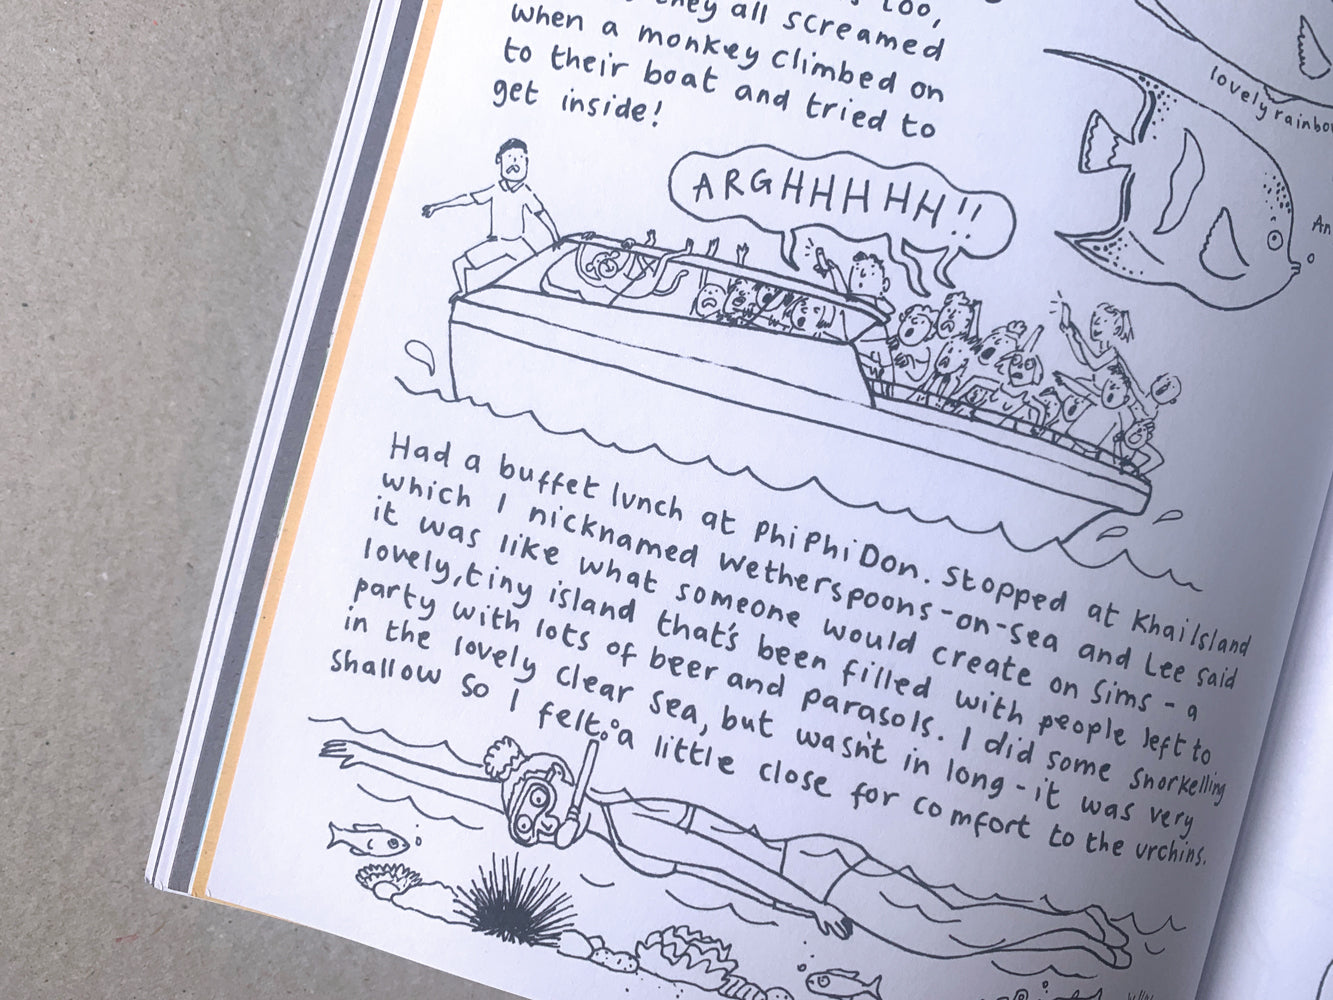 too,
they all screamed
when a monkey climbed on
to their boat and tried to
get inside!
ARGHHHHHH!!
lovely rainbow
An
Had a buffet lunch at Phi Phi Don. Stopped at Khai Island
which I nicknamed Wetherspoons-on-sea and Lee said
it was like what someone would create on Sims - a
lovely, tiny island that's been filled with people left to
party with lots of beer and parasols. I did some snorkelling
in the lovely clear sea, but wasn't in long - it was very
shallow so I felt a little close for comfort to the urchins.